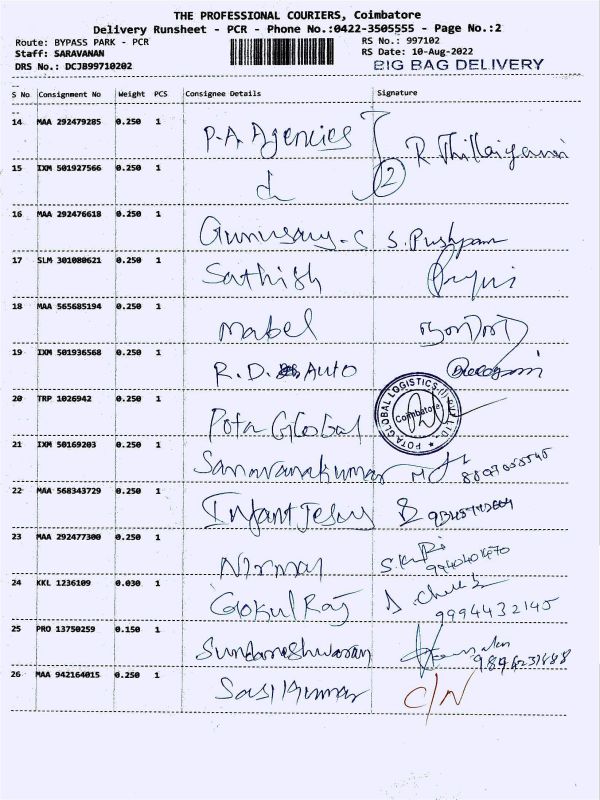 THE PROFESSIONAL COURIERS, Coimbatore
Delivery Runsheet - PCR - Phone No.:0422-3505555 - Page No.:2
Route: BYPASS PARK - PCR RS No.: 997102
Staff: SARAVANAN RS Date: 10-Aug-2022
DRS No.: DCJB99710202 BIG BAG DELIVERY
S No Consignment No Weight PCS Consignee Details Signature
14 MAA 292479285 0.250 1 P.A Agencies
15 IXM 501927566 0.250 1 2
16 MAA 292476618 0.250 1 S. Pushpam
17 SLM 301080621 0.250 1 Sathish
18 MAA 565685194 0.250 1 Mabel
19 IXM 501936568 0.250 1 R.D. Auto
20 TRP 1026942 0.250 1 Pota Global POTA GLOBAL LOGISTICS (I) PVT. LTD. Coimbatore
21 IXM 50169203 0.250 1 Saravanakumar
22 MAA 568343729 0.250 1 Infant Jesus
23 MAA 292477300 0.250 1 Nirmal
24 KKL 1236109 0.030 1 Gokul Raj 9994432145
25 PRO 13750259 0.150 1 Sundareshwaran
26 MAA 942164015 0.250 1 Sasi Kumar C/N